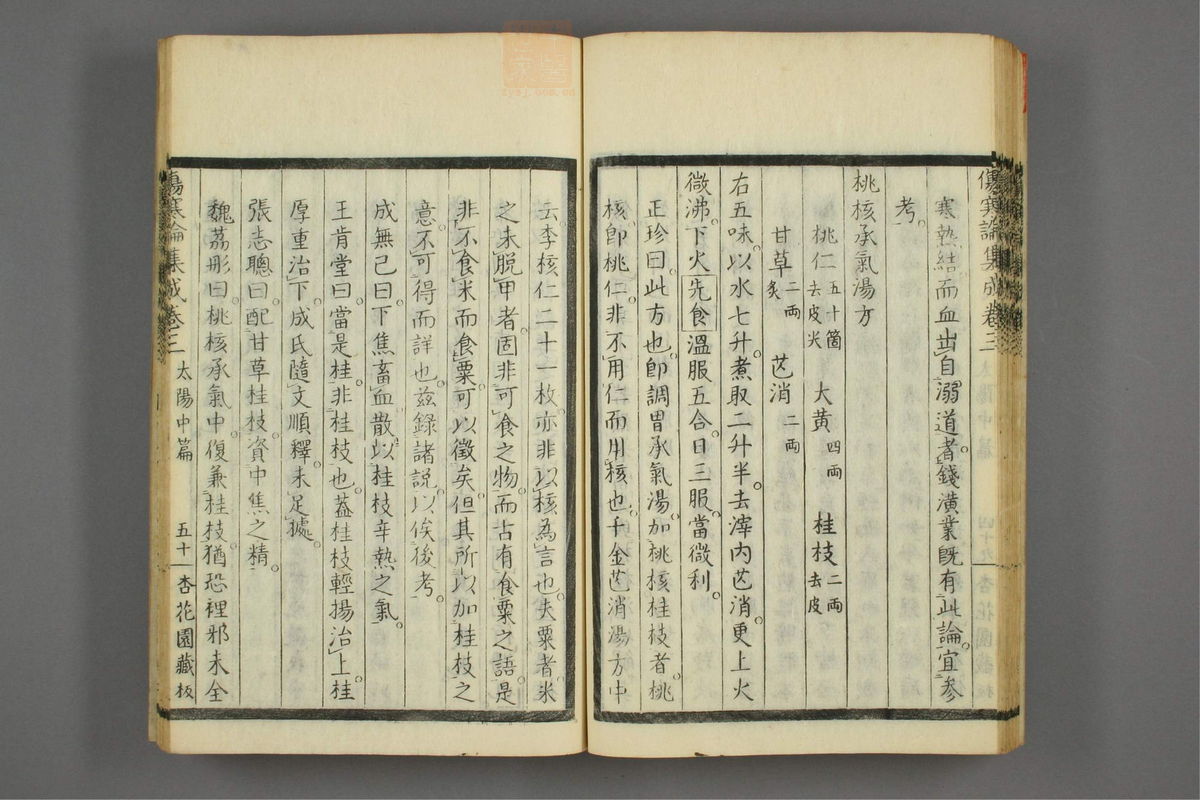 傷寒論集成卷三
寒熱結而血出自溺道者錢潢業既有此論宜參
考
桃核承氣湯方
桃仁五十箇去皮尖 大黄四兩 桂枝二兩去皮
甘草二兩炙 芒消二兩
右五味以水七升煮取二升半去滓內芒消更上火
微沸下火先食溫服五合日三服當微利
正珍曰此方也卽調胃承氣湯加桃核桂枝者桃
核卽桃仁非不用仁而用核也千金芒消湯方中
云李核仁二十一枚亦非以核為言也夫粟者米
之未脱甲者固非可食之物而古有食粟之語是
非不食米而食粟可以徵矣但其所以加桂枝之
意不可得而詳也茲錄諸説以俟後考
成無己曰下焦畜血散以桂枝辛熱之氣
王肯堂曰當是桂非桂枝也蓋桂枝輕揚治上桂
厚重治下成氏隨文順釋未足據
張志聰曰配甘草桂枝資中焦之精
魏荔彤曰桃核承氣中復兼桂枝猶恐裡邪未全
傷寒論集成卷三 太陽中篇 五十 杏花園藏板